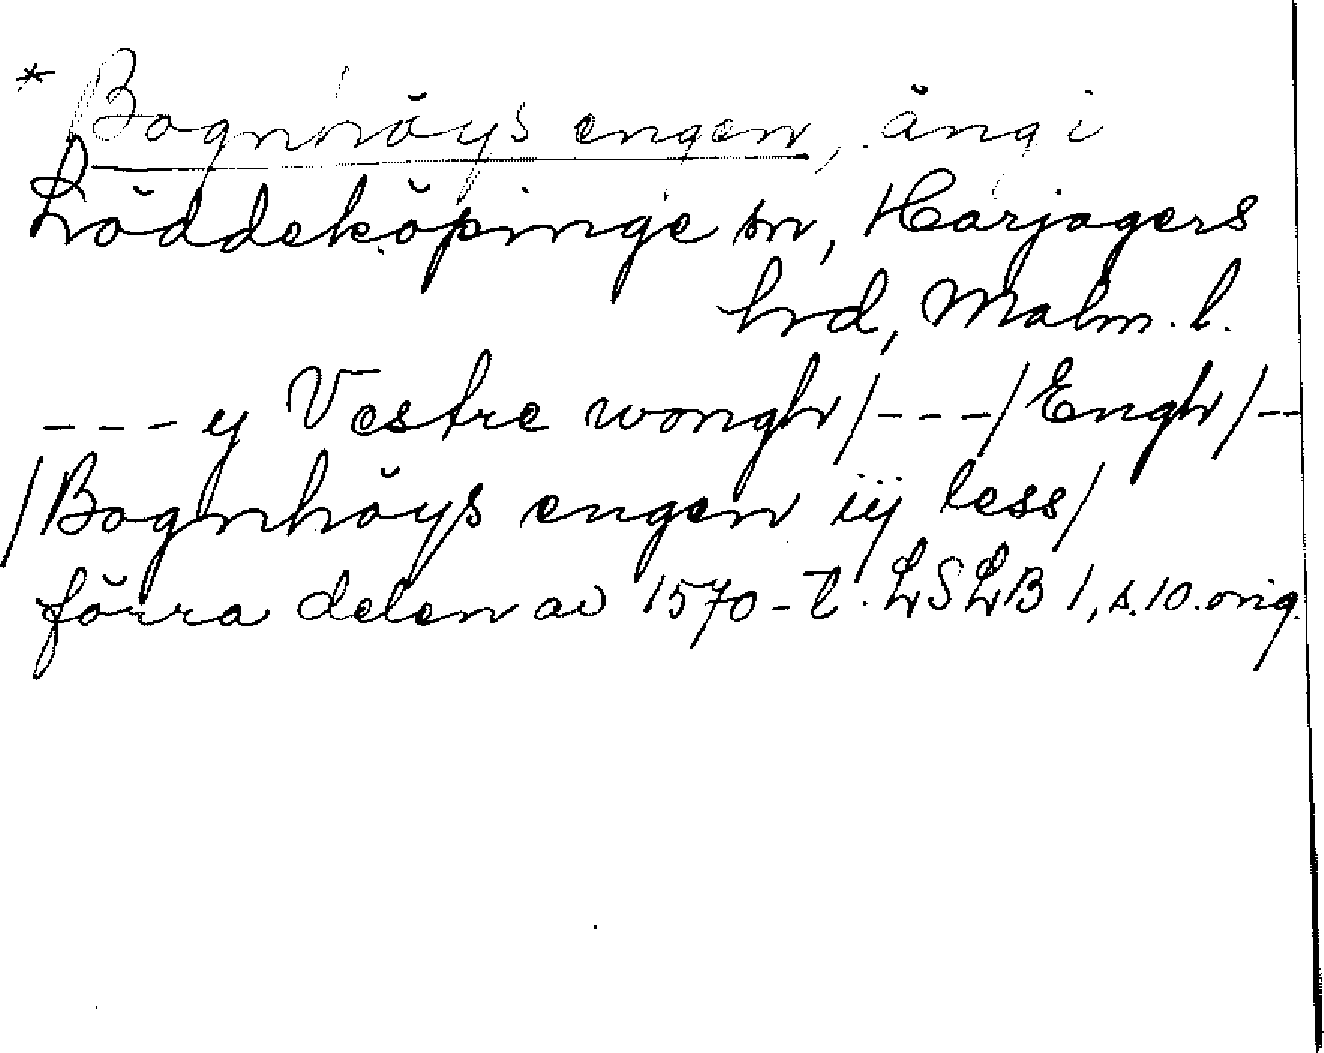 * Bognhöys engen, äng i
Löddeköpinge sn, Harjagers
hd, Malm. l.
--- y Vestre wongh/---/Engh/--
/Bognhöys engen iij less/
förra delen av 1570-t. LSLB 1, s. 10. orig.